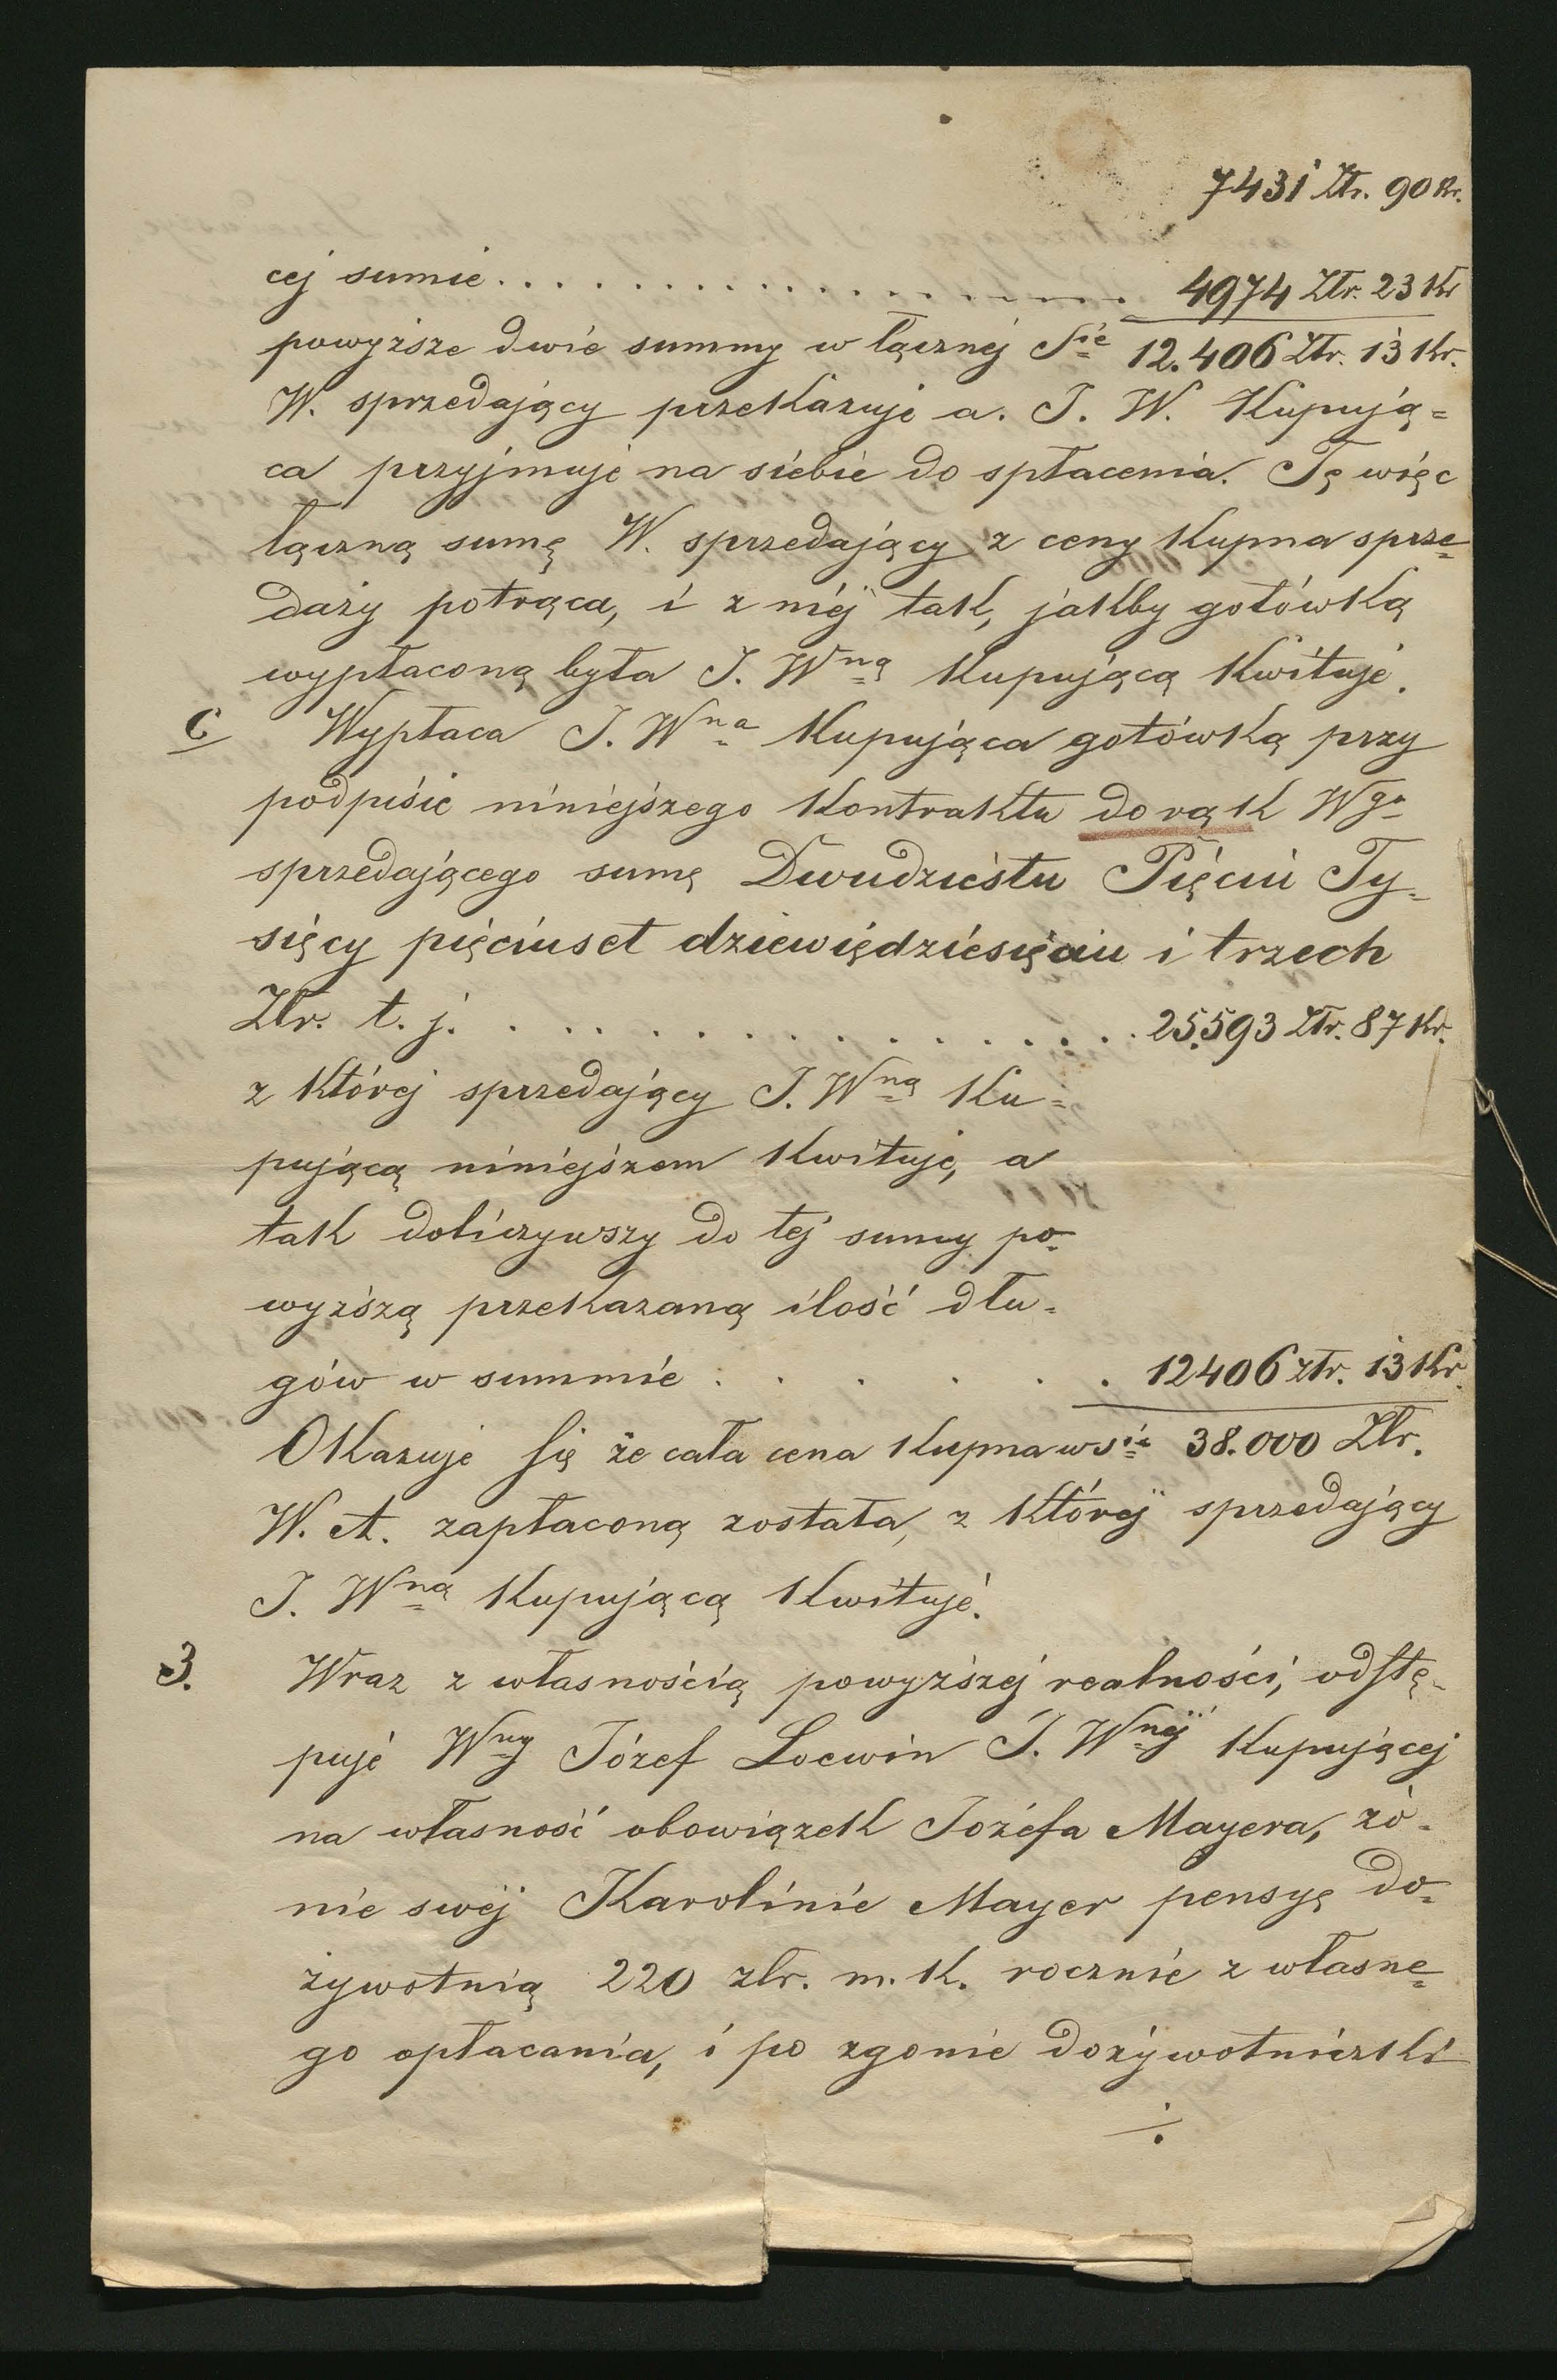 7431 Złr. 90 Kr.
cej sumie . . . . . . . . . . . . . . . . . . 4974 Złr. 23 Kr
powyższe dwie summy w łącznéj Sie 12.406 Złr. 13 Kr.
W. sprzedający przekazuje a. J. W. Kupują=
ca przyjmuje na siebie do spłacenia. Tę więc
łączną sumę W. sprzedający z ceny Kupna sprze=
daży potrąca, i z niéj tak, jakby gotówką
wypłaconą była J. Wną Kupującą Kwituje.
C Wypłaca J. Wna Kupująca gotówką przy
podpisie niniejszego Kontraktu do rąk Wgo
sprzedającego sumę Dwudziestu Pięciu Ty=
sięcy pięciuset dziewiędziesięciu i trzech
Złr. t. j. . . . . . . . . . . . . . . . 25.593 Złr. 87 Kr.
z której sprzedający J. Wną Ku=
pującą niniejszem Kwituje, a
tak doliczywszy do tej sumy po=
wyższą przekazaną ilość dłu=
gów w summie . . . . . . 12406 złr. 13 Kr.
Okazuje się że cała cena Kupna w Sie 38.000 Złr.
W. A. zapłaconą została, z któréj sprzedający
J. Wną Kupującą Kwituje.
3. Wraz z własnością powyższej realności, odstę=
puje Wny Józef Loewin J. Wnéj Kupującej
na własność obowiązek Józefa Mayera, żo=
nie swéj Karolinie Mayer pensyę do=
żywotnią 220 złr. m. k. rocznie z własne=
go opłacania, i po zgonie dożywotniczki
./.